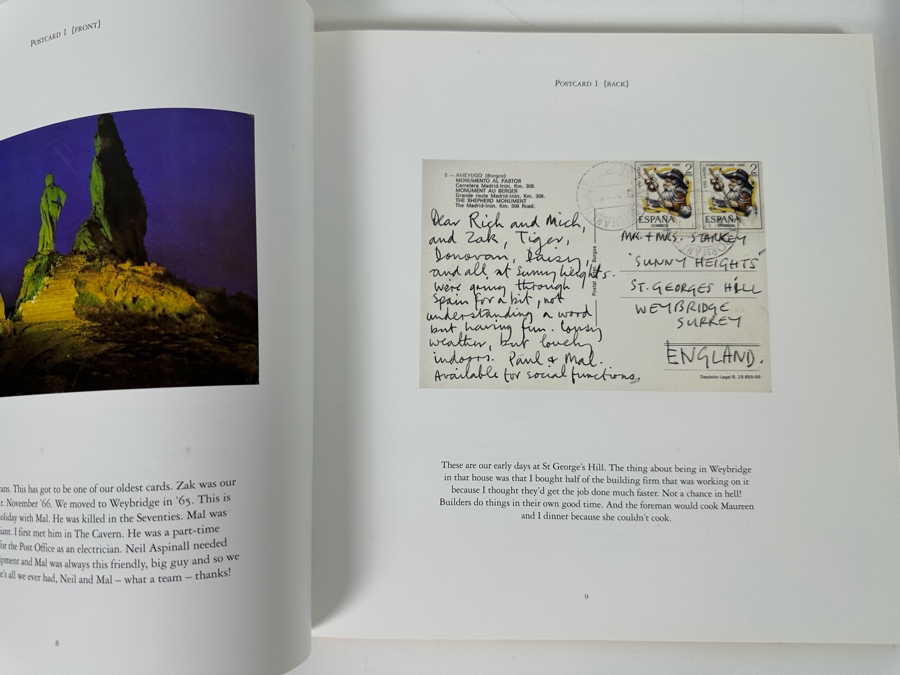 POSTCARD 1 [FRONT]
ans. This has got to be one of our oldest cards. Zak was our
r. November '66. We moved to Weybridge in '65. This is
oliday with Mal. He was killed in the Seventies. Mal was
iant. I first met him in The Cavern. He was a part-time
for the Post Office as an electrician. Neil Aspinall needed
ipment and Mal was always this friendly, big guy and so we
t's all we ever had, Neil and Mal – what a team – thanks!
8
POSTCARD 1 [BACK]
5 – AMEYUGO (Burgos)
MONUMENTO AL PASTOR
Carretera Madrid-Irún, Km. 308.
MONUMENT AU BERGER
Grande route Madrid-Irún, Km. 308.
THE SHEPHERD MONUMENT
The Madrid-Irún, Km. 308 Road.
Dear Rich and Mich,
and Zak, Tiger,
Donovan, Daisy,
and all at Sunny heights.
We're going through
Spain for a bit, not
understanding a word
but having fun. Lousy
weather, but lovely
indoors. Paul & Mal.
Available for social functions.
2
ESPAÑA
CORREOS
2
ESPAÑA
CORREOS
MR. + MRS. STARKEY
'SUNNY HEIGHTS'
ST. GEORGES HILL
WEYBRIDGE
SURREY
ENGLAND.
Depósito Legal B. 25.865-65
These are our early days at St George's Hill. The thing about being in Weybridge
in that house was that I bought half of the building firm that was working on it
because I thought they'd get the job done much faster. Not a chance in hell!
Builders do things in their own good time. And the foreman would cook Maureen
and I dinner because she couldn't cook.
9